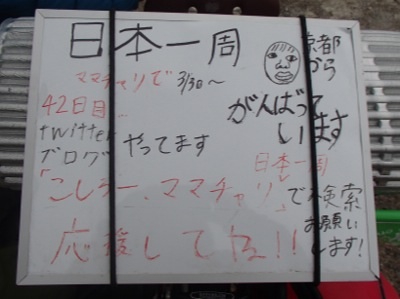 日本一周
京都
から
ママチャリで 3/30~
42日目..
がんばって
います
twitter
ブログ やってます
日本一周
「こしろー、ママチャリ」で検索
お願い
します!
応援してね!!